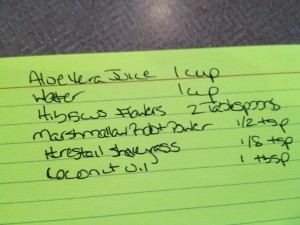 Aloe Vera Juice 1 cup
Water 1 cup
Hibiscus Flowers 2 Tablespoons
Marshmallow Root Powder 1/2 tsp
Horsetail Shavegrass 1/8 tsp
Coconut Oil 1 tbsp